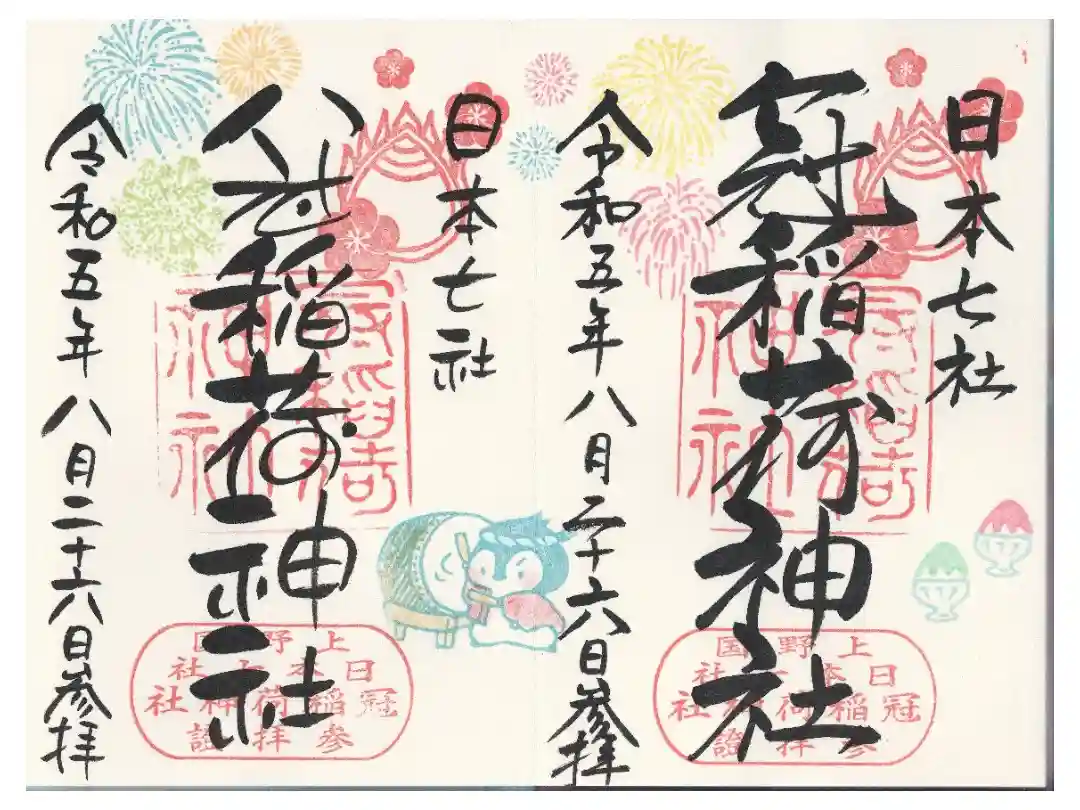 日本七社
冠稲荷神社
令和五年八月二十六日参拝
上野国
日本七社
冠稲荷神社
参拝證
日本七社
冠稲荷神社
令和五年八月二十六日参拝
上野国
日本七社
冠稲荷神社
参拝證